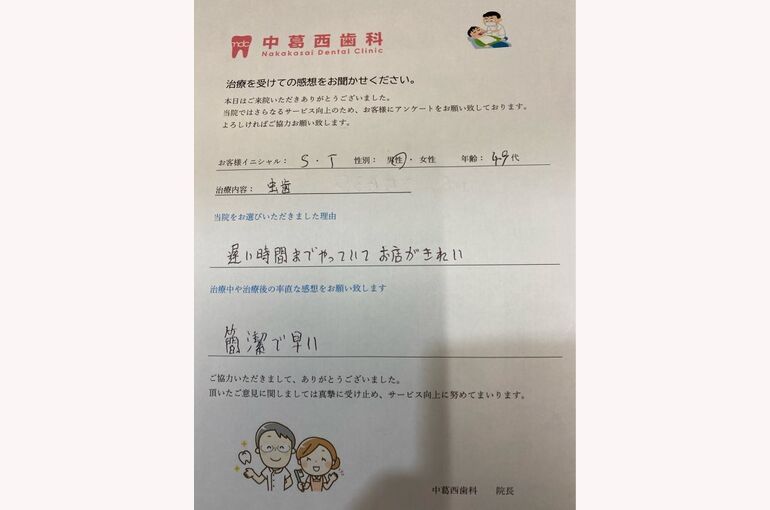 ndc 中葛西歯科
Nakakasai Dental Clinic
治療を受けての感想をお聞かせください。
本日はご来院いただきありがとうございました。
当院ではさらなるサービス向上のため、お客様にアンケートをお願い致しております。
よろしければご協力お願い致します。
お客様イニシャル： S・T 性別： 男性・女性 年齢： 49代
治療内容： 虫歯
当院をお選びいただきました理由
遅い時間までやっていて お店がきれい
治療中や治療後の率直な感想をお願い致します
簡潔で早い
ご協力いただきまして、ありがとうございました。
頂いたご意見に関しましては真摯に受け止め、サービス向上に努めてまいります。
中葛西歯科 院長